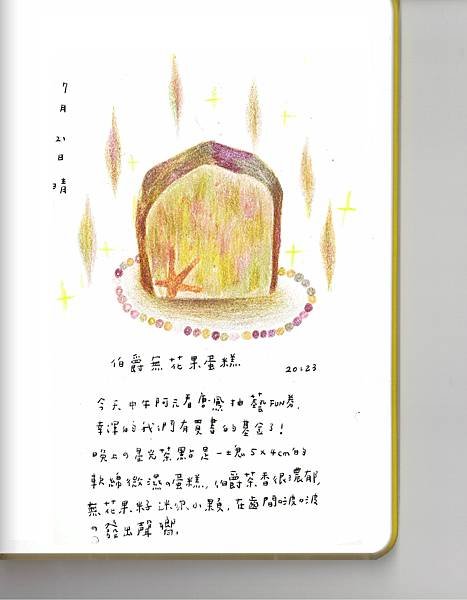 7月21日 晴
伯爵無花果蛋糕
20:23
今天中午阿元看直播抽藝FUN券,
幸運的我們有買書的基金了!
晚上の星光茶點是一塊5x4cm的
軟綿微濕の蛋糕,伯爵茶香很濃郁,
無花果籽迷你小顆,在齒間啵啵
の發出聲響。